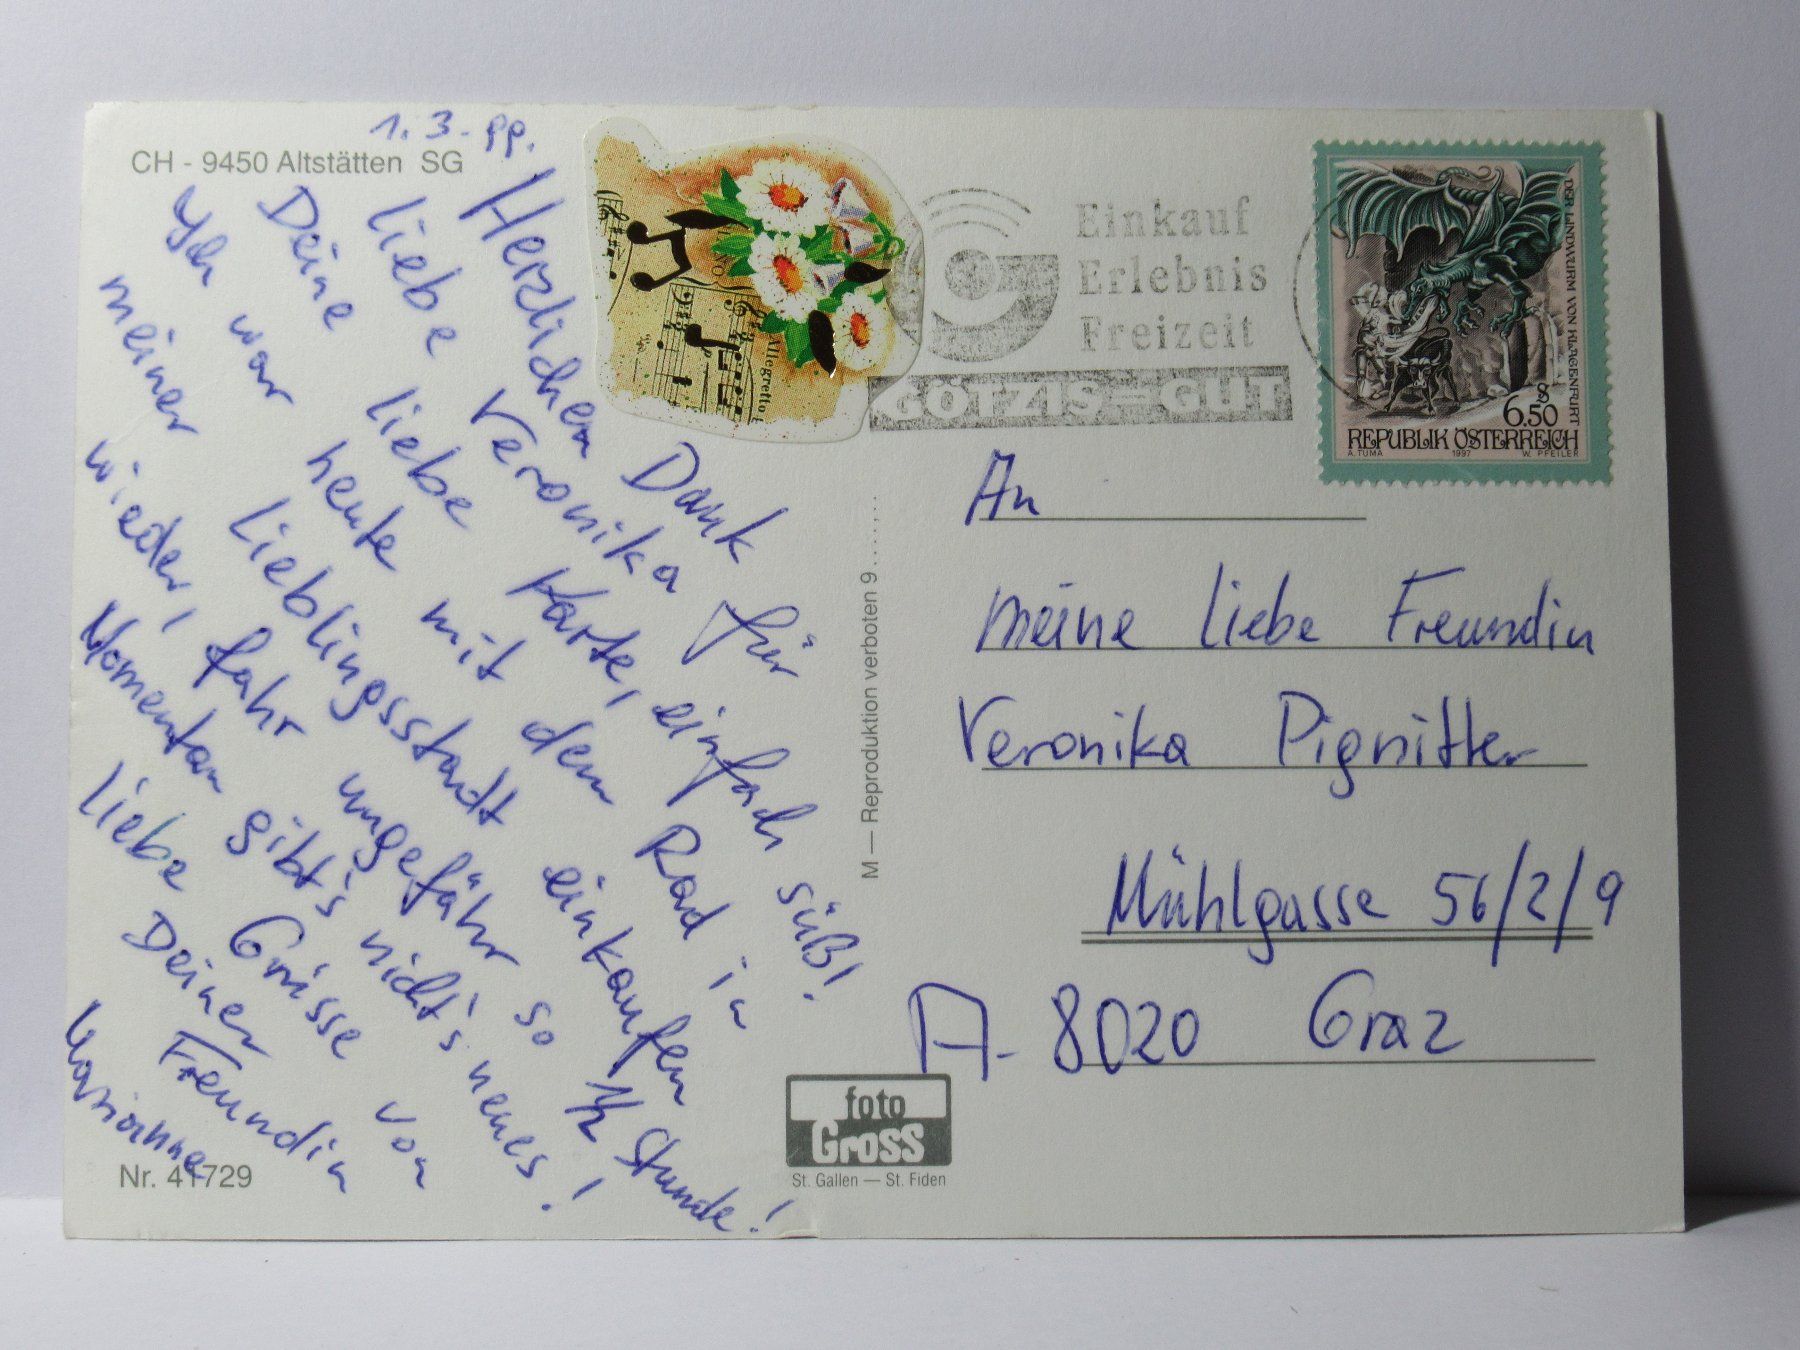 CH - 9450 Altstätten SG
1. 3. 99.
Herzlichen Dank für
liebe Veronika
Deine liebe Karte, einfach süß!
Ich war heute mit dem Rad in
meiner Lieblingsstadt einkaufen
wieder, fahr ungefähr so 1/2 Stunde!
Momentan gibt's nicht's neues!
Liebe Grüsse von
Deiner Freundin
Marianne
Nr. 41729
Allegretto
Einkauf
Erlebnis
Freizeit
GÖTZIS=GUT
DER LINDWURM VON KLAGENFURT
S 6.50
REPUBLIK ÖSTERREICH
A. TUMA 1997 W. PFEILER
An
meine liebe Freundin
Veronika Pignitter
Mühlgasse 56/2/9
A- 8020 Graz
M — Reproduktion verboten 9.......
foto
Gross
St. Gallen — St. Fiden